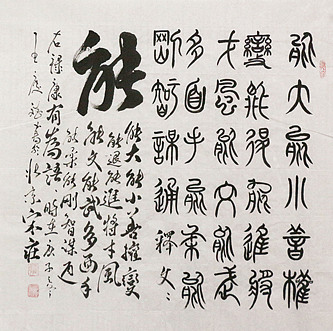 能大能小善權
變能退能進將
才風能文能武
多面手能柔能
剛智謀通 釋文
能
能大能小善權變
能退能進將才風
能文能武多面手
能柔能剛智謀通
右錄康有為語 時在庚子
書於北京宋莊